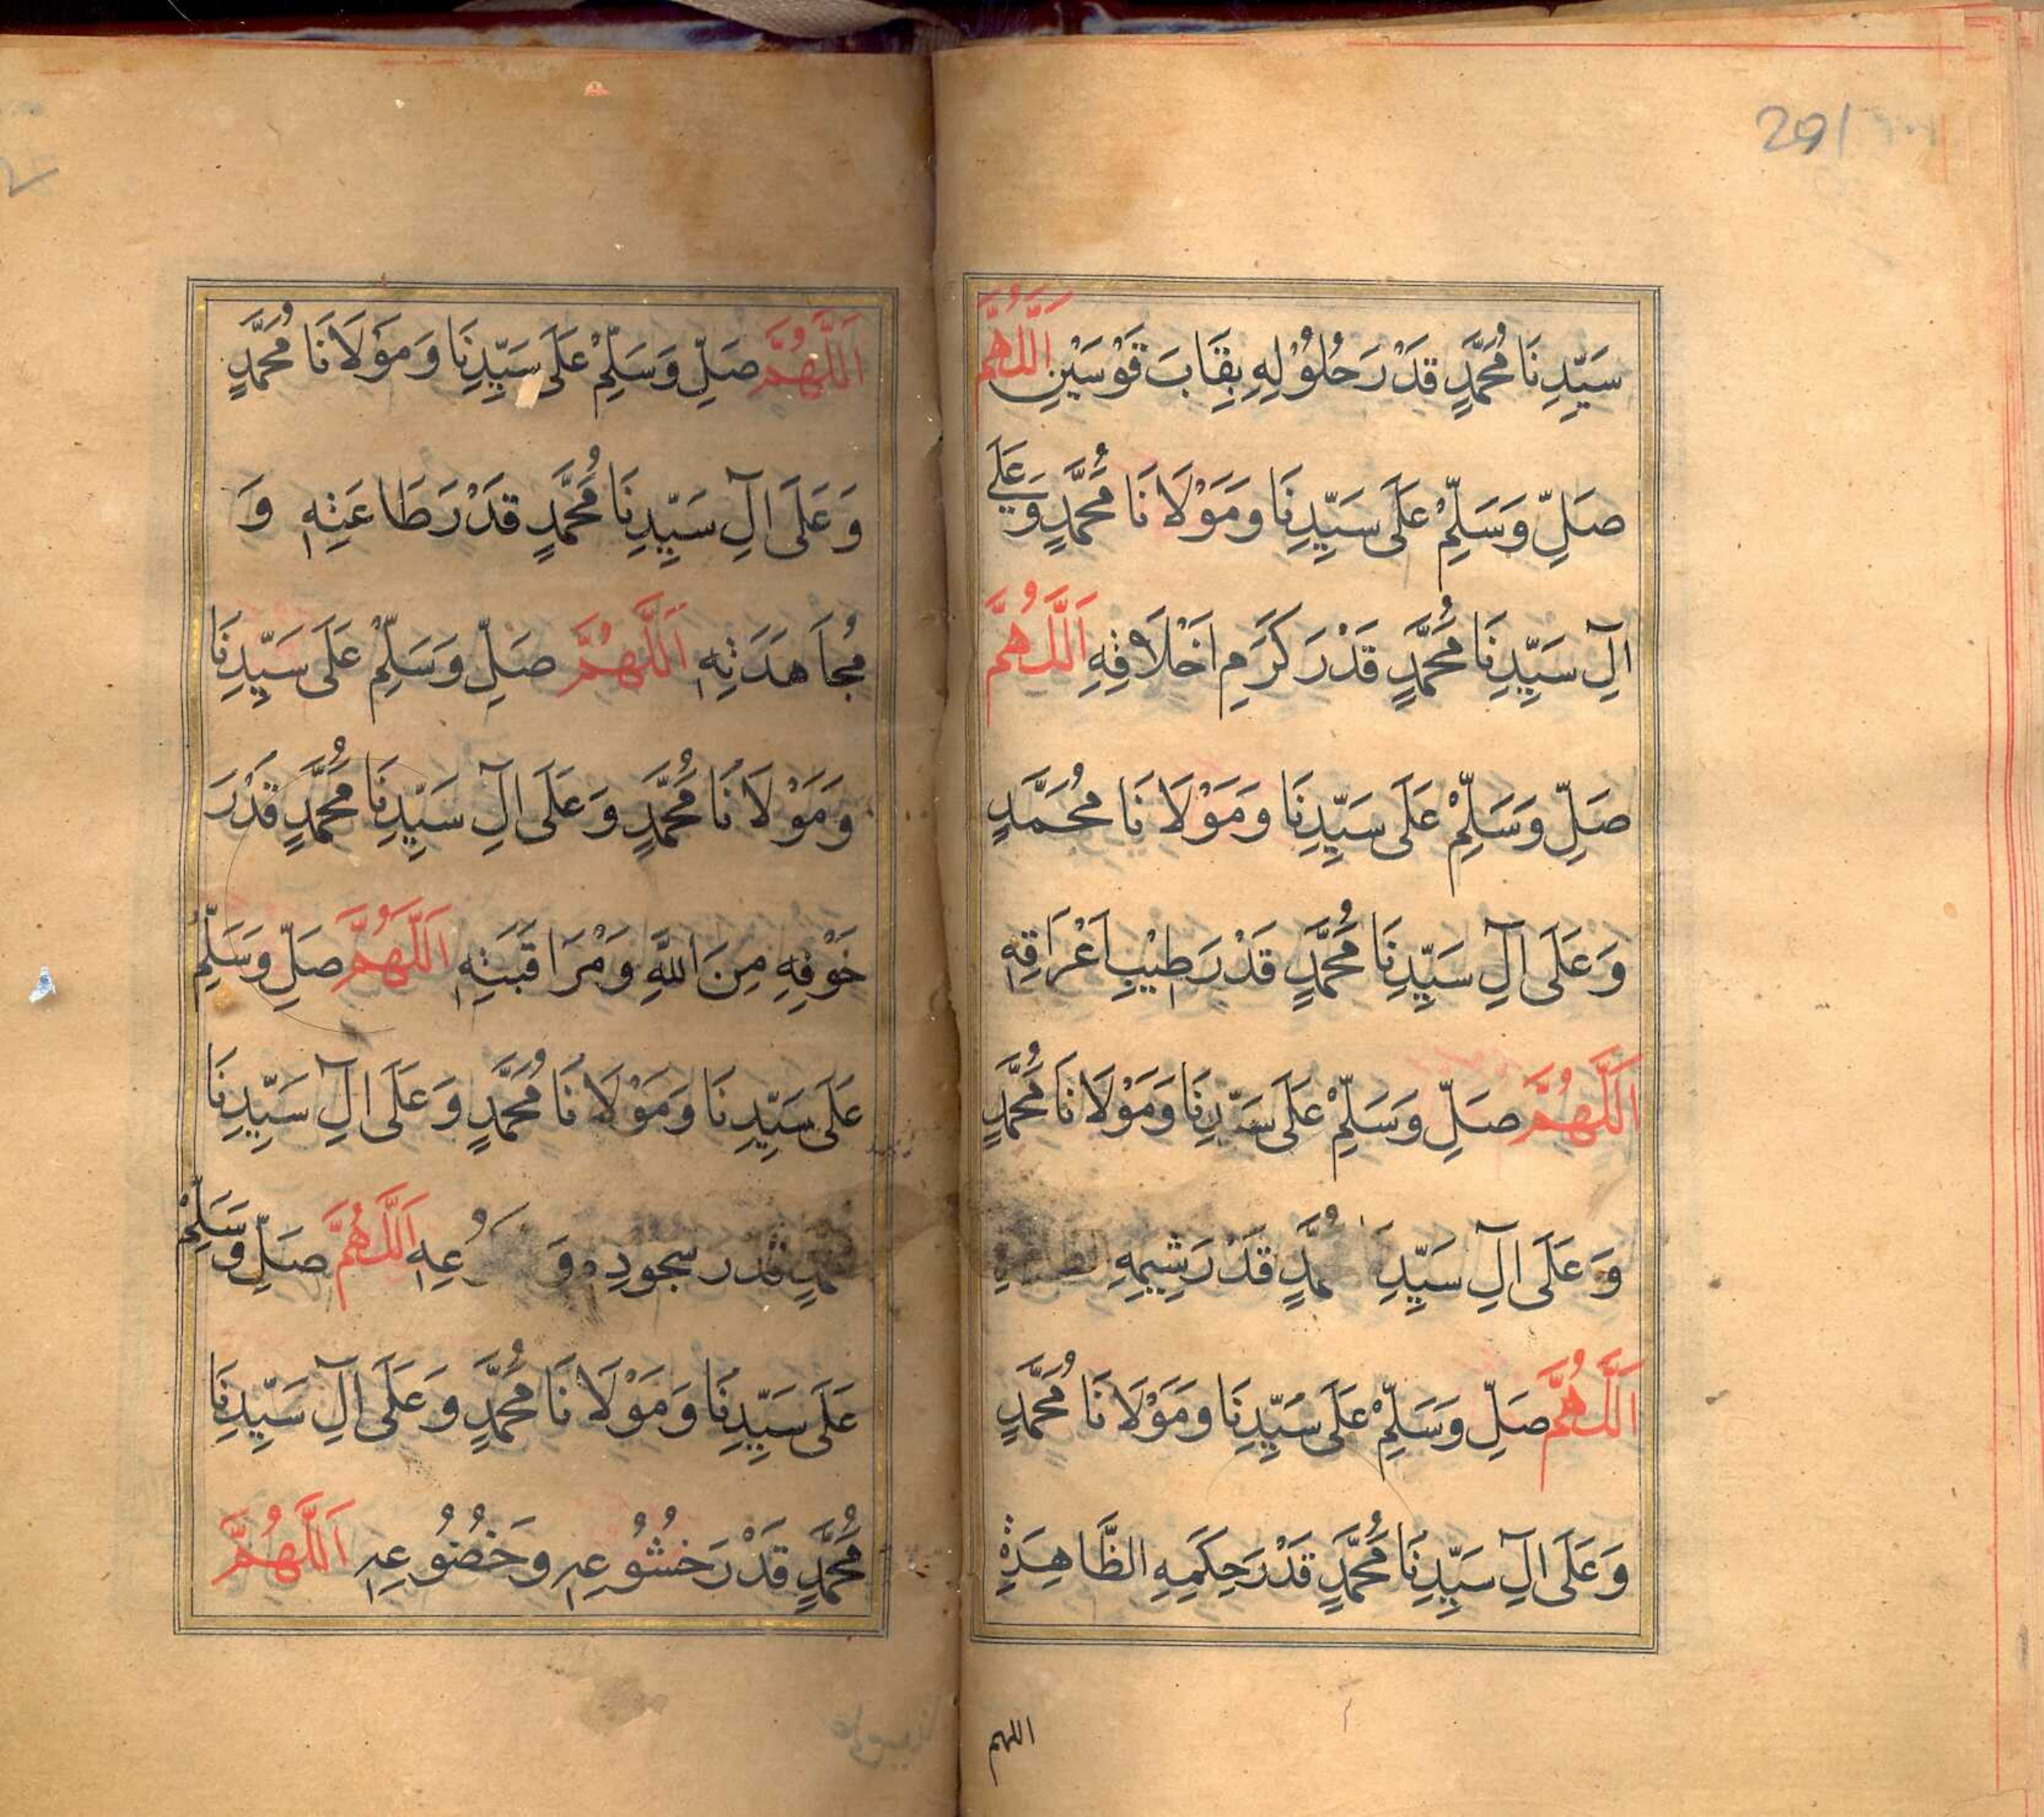 291
سَيِّدِنَا مُحَمَّدٍ قَدْرَ حُلُوْلِهِ بِقَابَ قَوْسَيْنِ اَللّٰهُمَّ
صَلِّ وَسَلِّمْ عَلَى سَيِّدِنَا وَمَوْلَانَا مُحَمَّدٍ وَعَلَى
اٰلِ سَيِّدِنَا مُحَمَّدٍ قَدْرَ كَرَمِ اَخْلَاقِهِ اَللّٰهُمَّ
صَلِّ وَسَلِّمْ عَلَى سَيِّدِنَا وَمَوْلَانَا مُحَمَّدٍ
وَعَلَى اٰلِ سَيِّدِنَا مُحَمَّدٍ قَدْرَ طِيْبِ اَعْرَاقِهِ
اَللّٰهُمَّ صَلِّ وَسَلِّمْ عَلَى سَيِّدِنَا وَمَوْلَانَا مُحَمَّدٍ
وَعَلَى اٰلِ سَيِّدِنَا مُحَمَّدٍ قَدْرَ شِيَمِهِ
اَللّٰهُمَّ صَلِّ وَسَلِّمْ عَلَى سَيِّدِنَا وَمَوْلَانَا مُحَمَّدٍ
وَعَلَى اٰلِ سَيِّدِنَا مُحَمَّدٍ قَدْرَ حِكَمِهِ الظَّاهِرَةِ
اللهم
اَللّٰهُمَّ صَلِّ وَسَلِّمْ عَلَى سَيِّدِنَا وَمَوْلَانَا مُحَمَّدٍ
وَعَلَى اٰلِ سَيِّدِنَا مُحَمَّدٍ قَدْرَ طَاعَتِهِ وَ
مُجَاهَدَتِهِ اَللّٰهُمَّ صَلِّ وَسَلِّمْ عَلَى سَيِّدِنَا
وَمَوْلَانَا مُحَمَّدٍ وَعَلَى اٰلِ سَيِّدِنَا مُحَمَّدٍ قَدْرَ
خَوْفِهِ مِنَ اللّٰهِ وَمُرَاقَبَتِهِ اَللّٰهُمَّ صَلِّ وَسَلِّمْ
عَلَى سَيِّدِنَا وَمَوْلَانَا مُحَمَّدٍ وَعَلَى اٰلِ سَيِّدِنَا
قدر سجوده و اَللّٰهُمَّ صَلِّ وَسَلِّمْ
عَلَى سَيِّدِنَا وَمَوْلَانَا مُحَمَّدٍ وَعَلَى اٰلِ سَيِّدِنَا
مُحَمَّدٍ قَدْرَ خُشُوْعِهِ وَخُضُوْعِهِ اَللّٰهُمَّ